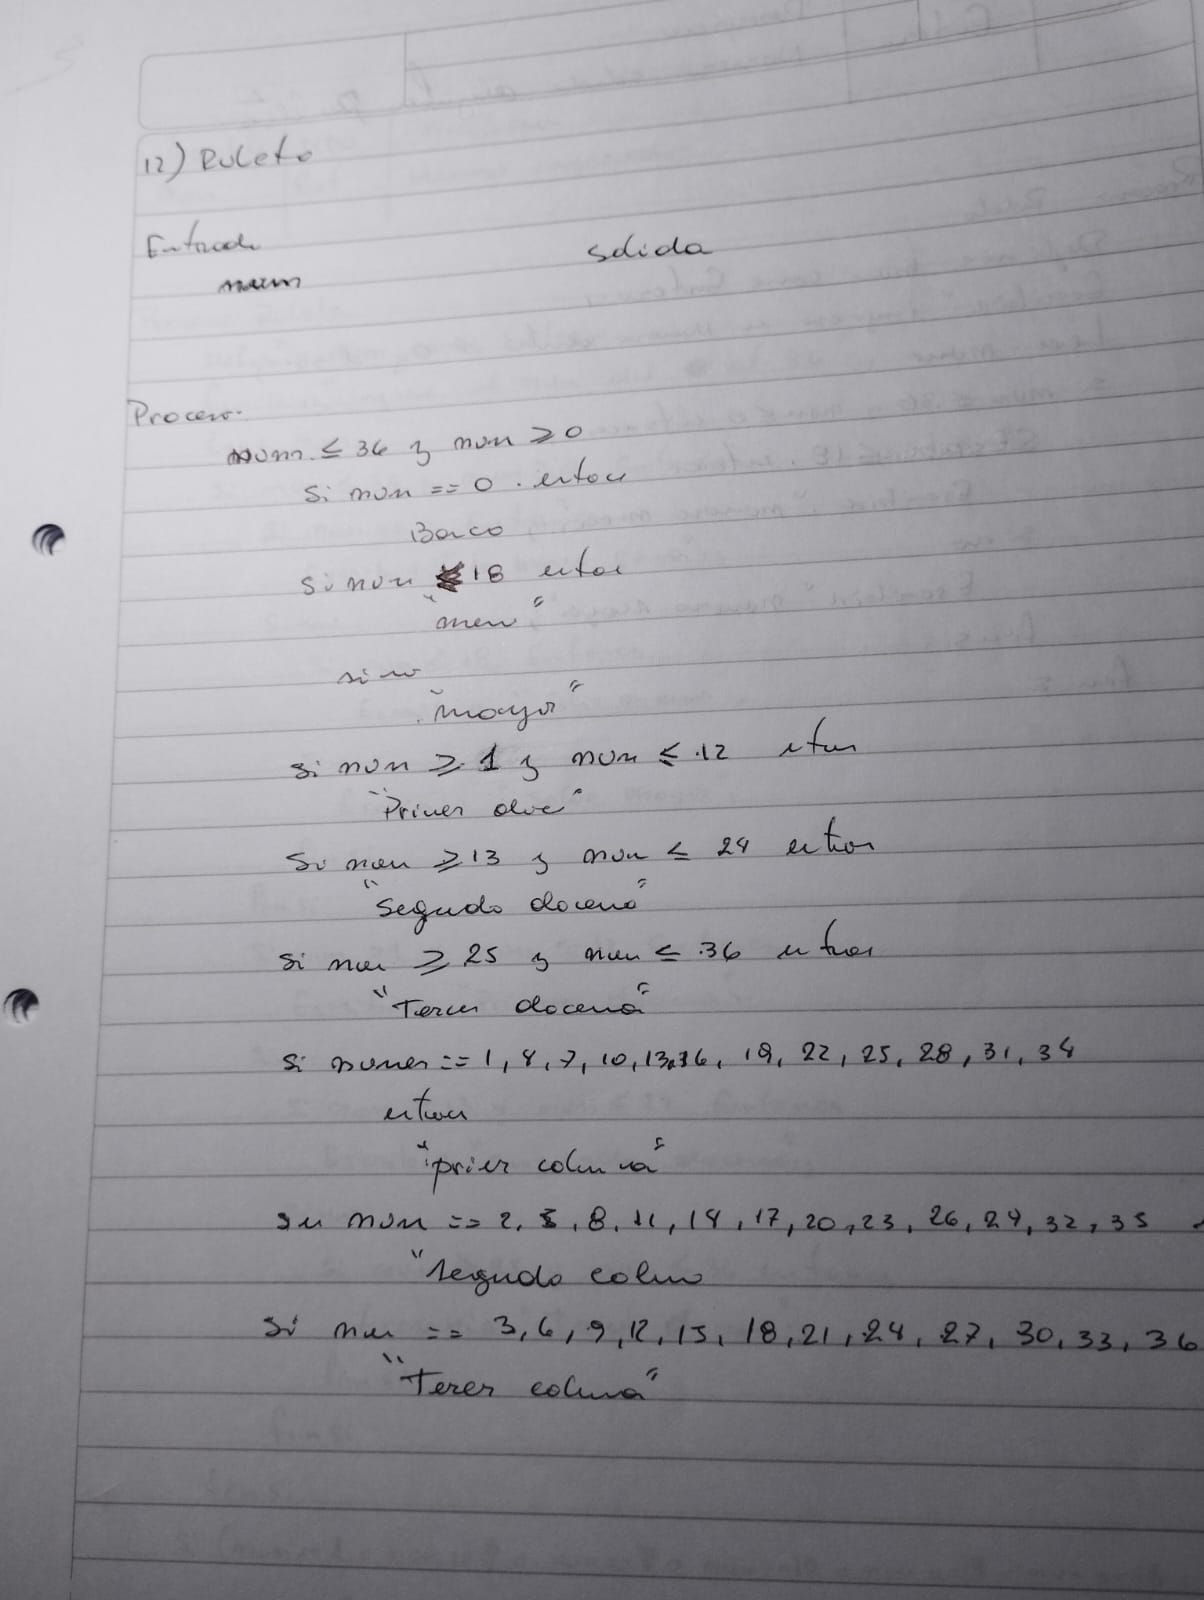 12) Ruleta
Entrada Salida
num
Proceso.
num. ≤ 36 y num ≥ 0
Si num == 0 . entoce
Banco
Si num ≤ 18 entoe
"men"
sino
"mayor"
Si num ≥ 1 y num ≤ 12 entos
"Primer doce"
Si num ≥ 13 y num ≤ 24 entoes
"Segundo docena"
Si num ≥ 25 y num ≤ 36 entoes
"Tercer docena"
Si numer == 1, 4, 7, 10, 13, 16, 19, 22, 25, 28, 31, 34
entoes
"primer columna"
Si num == 2, 5, 8, 11, 14, 17, 20, 23, 26, 29, 32, 35
"Segundo colum
Si num == 3, 6, 9, 12, 15, 18, 21, 24, 27, 30, 33, 36
"Tercer columna"